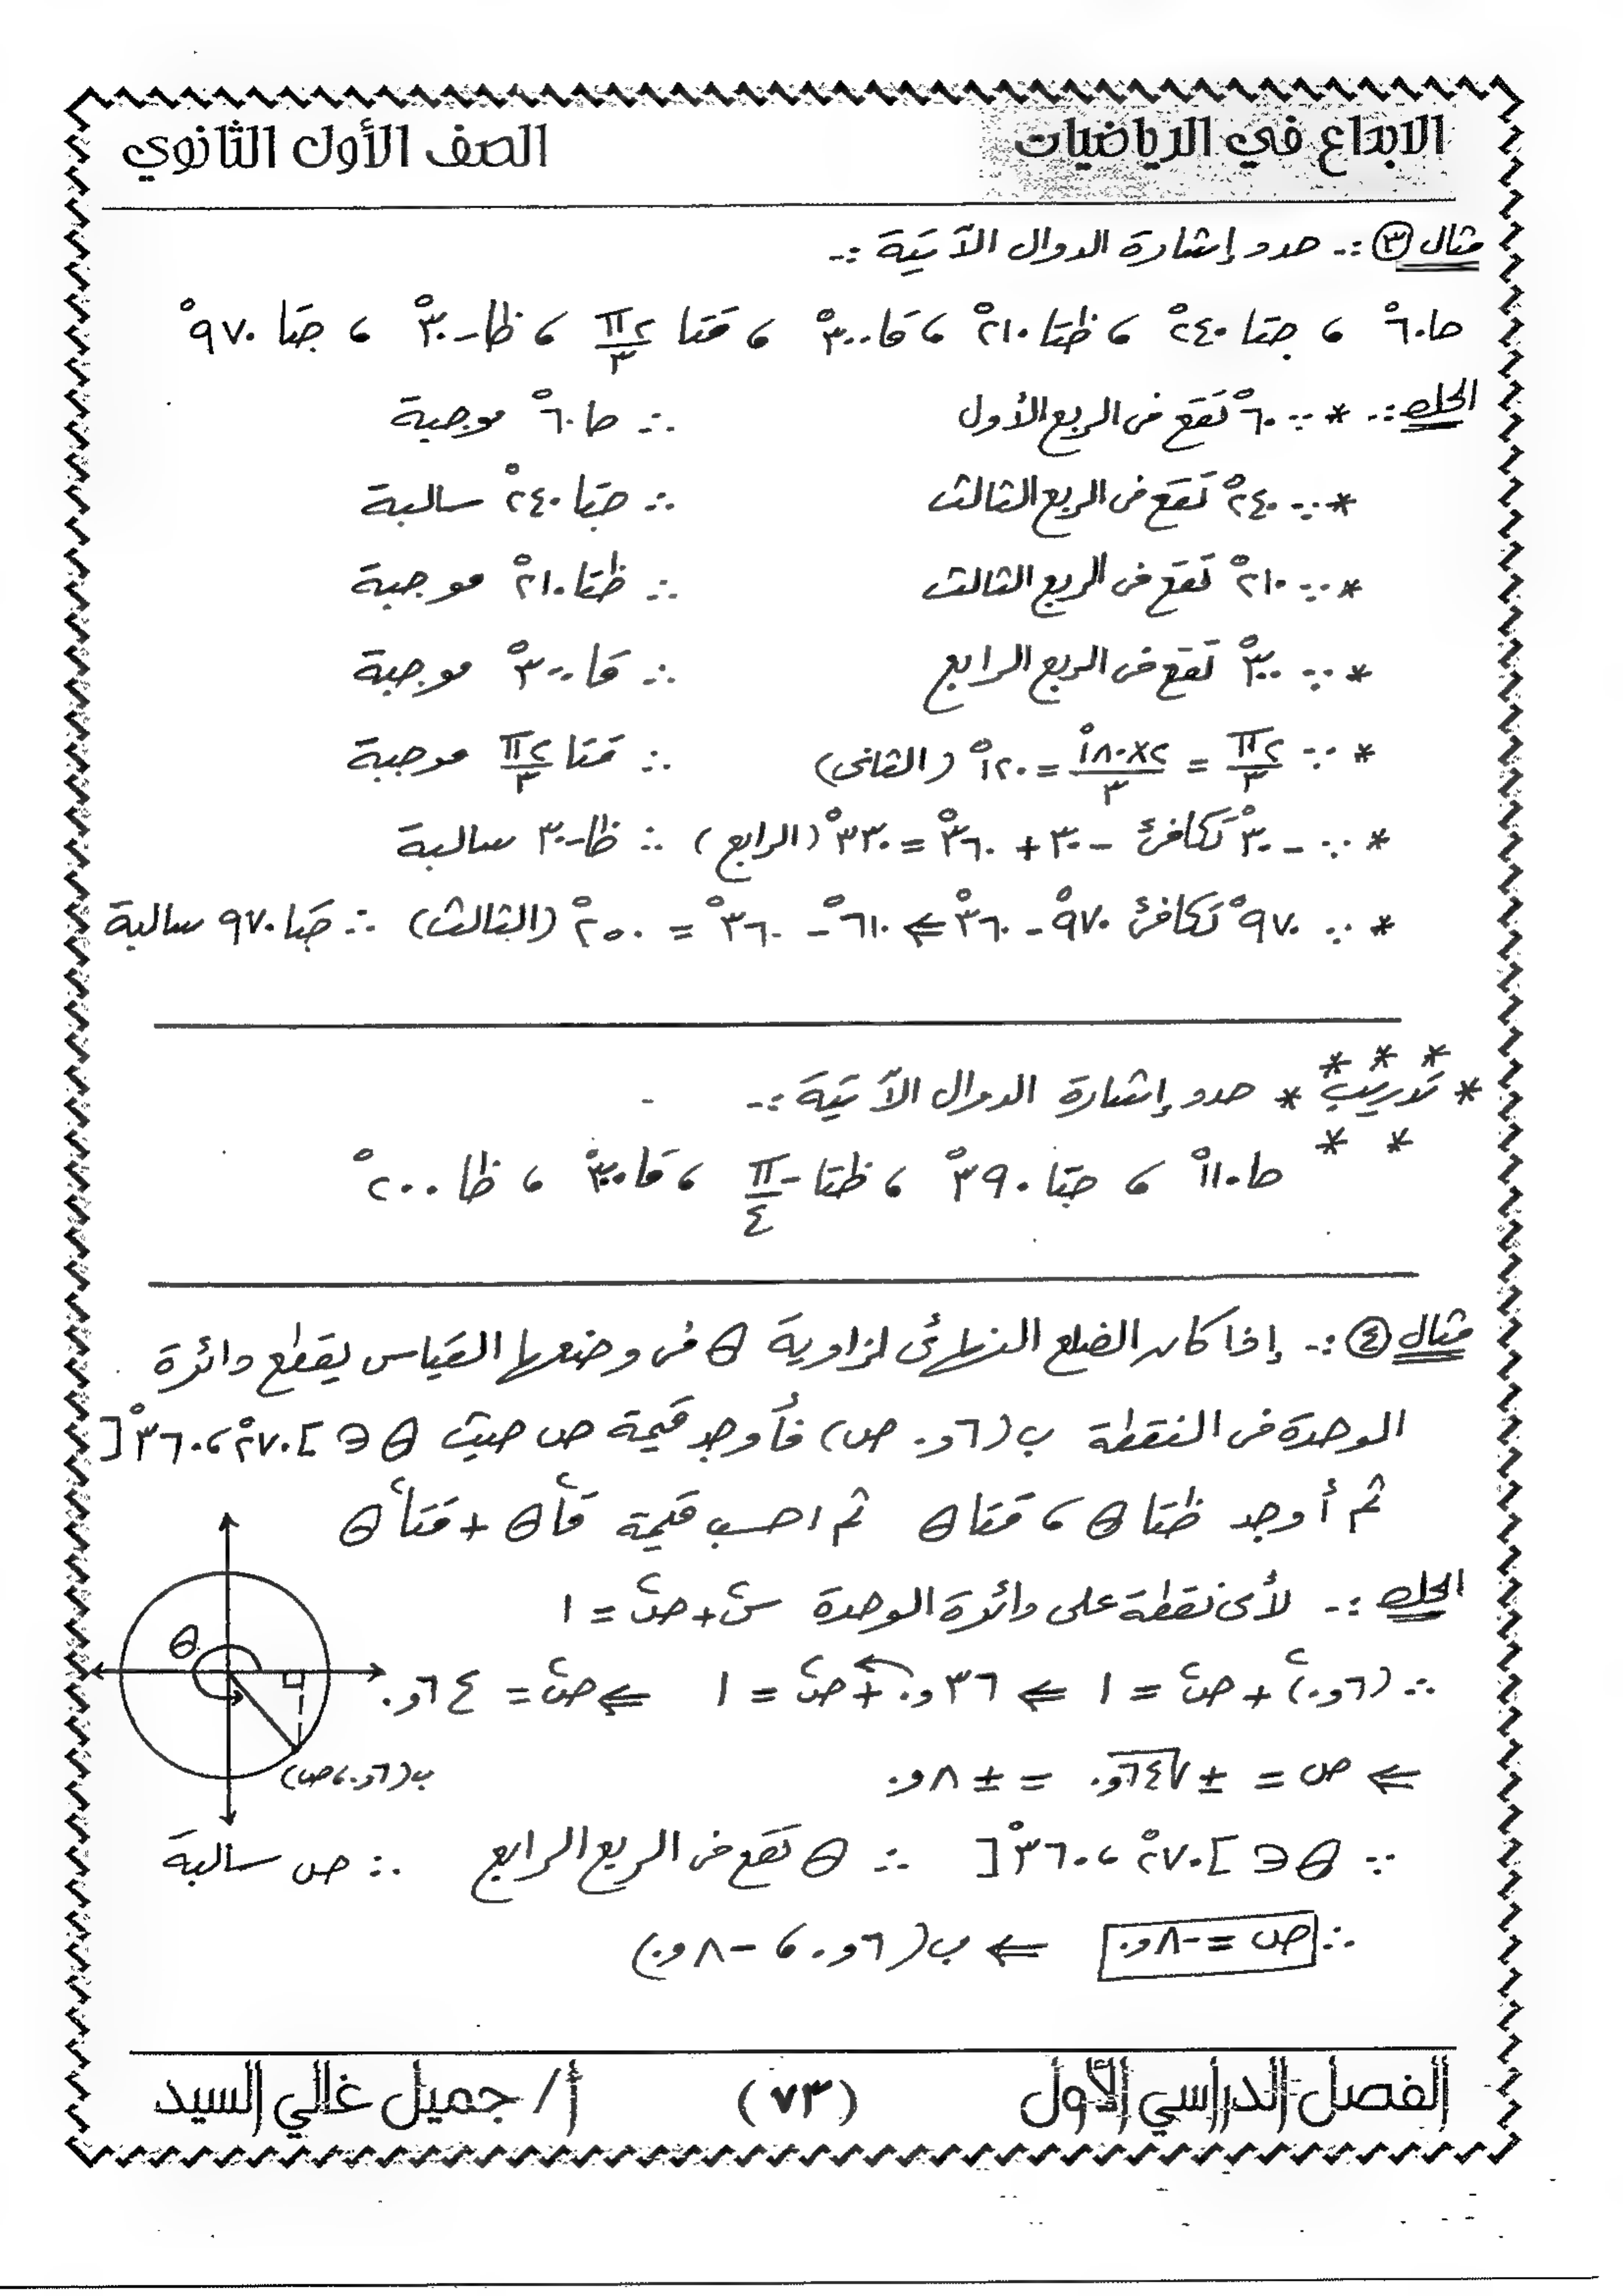 الابداع في الرياضيات
الصف الأول الثانوي
مثال ٣ :- حدد إشارة الدوال الآتية :-
حا ٦٠° ، جتا ٢٤٠° ، ظتا ٢١٠° ، قا ٣٠٠° ، قتا ٢π/٣ ، ظا -٣٠° ، جتا ٩٧٠°
الحل :- * ∵ ٦٠° تقع فى الربع الأول ∴ حا ٦٠° موجبة
* ∵ ٢٤٠° تقع فى الربع الثالث ∴ جتا ٢٤٠° سالبة
* ∵ ٢١٠° تقع فى الربع الثالث ∴ ظتا ٢١٠° موجبة
* ∵ ٣٠٠° تقع فى الربع الرابع ∴ قا ٣٠٠° موجبة
* ∵ ٢π/٣ = ٢×١٨٠°/٣ = ١٢٠° (الثانى) ∴ قتا ٢π/٣ موجبة
* ∵ -٣٠° تكافئ -٣٠ + ٣٦٠° = ٣٣٠° (الرابع) ∴ ظا -٣٠ سالبة
* ∵ ٩٧٠° تكافئ ٩٧٠° - ٣٦٠° ⇐ ٦١٠° - ٣٦٠° = ٢٥٠° (الثالث) ∴ جتا ٩٧٠ سالبة
* تدريب * حدد إشارة الدوال الآتية :-
حا ١١٠° ، جتا ٣٩٠° ، ظتا -π/٤ ، قا ٣٠٠° ، ظا ٢٠٠°
مثال ٤ :- إذا كان الضلع النهائى لزاوية θ فى وضعها القياس يقطع دائرة
الوحدة فى النقطة ب (٦و٠ ص) فأوجد قيمة ص حيث θ ∈ ]٢٧٠° ، ٣٦٠°[
ثم أوجد ظتا θ ، قتا θ ثم احسب قيمة قا² θ + قتا² θ
الحل :- لأى نقطة على دائرة الوحدة س² + ص² = ١
∴ (٦و٠)² + ص² = ١ ⇐ ٣٦و٠ + ص² = ١ ⇐ ص² = ٦٤و٠
⇐ ص = ± √٦٤و٠ = ± ٨و٠
∵ θ ∈ ]٢٧٠° ، ٣٦٠°[ ∴ θ تقع فى الربع الرابع ∴ ص سالبة
∴ ص = -٨و٠ ⇐ ب (٦و٠ ، -٨و٠)
θ
ب (٦و٠ ، ص)
الفصل الدراسي الأول
(٧٣)
أ / جميل غالي السيد